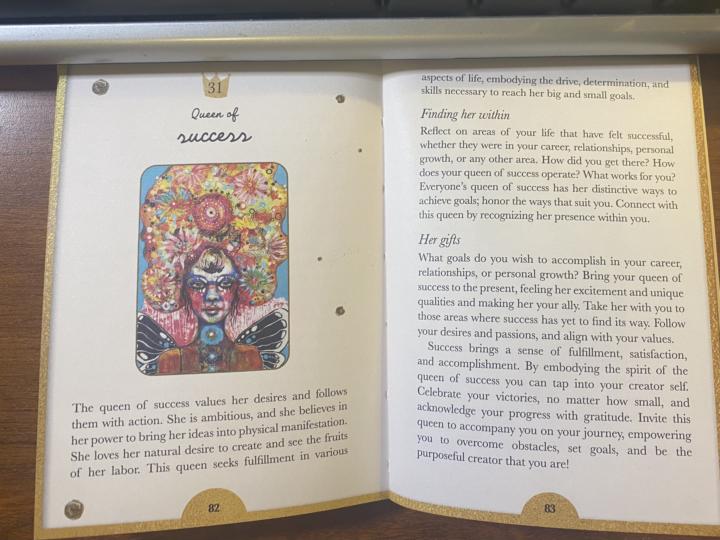 31
Queen of
success
The queen of success values her desires and follows
them with action. She is ambitious, and she believes in
her power to bring her ideas into physical manifestation.
She loves her natural desire to create and see the fruits
of her labor. This queen seeks fulfillment in various
82
aspects of life, embodying the drive, determination, and
skills necessary to reach her big and small goals.
Finding her within
Reflect on areas of your life that have felt successful,
whether they were in your career, relationships, personal
growth, or any other area. How did you get there? How
does your queen of success operate? What works for you?
Everyone's queen of success has her distinctive ways to
achieve goals; honor the ways that suit you. Connect with
this queen by recognizing her presence within you.
Her gifts
What goals do you wish to accomplish in your career,
relationships, or personal growth? Bring your queen of
success to the present, feeling her excitement and unique
qualities and making her your ally. Take her with you to
those areas where success has yet to find its way. Follow
your desires and passions, and align with your values.
Success brings a sense of fulfillment, satisfaction,
and accomplishment. By embodying the spirit of the
queen of success you can tap into your creator self.
Celebrate your victories, no matter how small, and
acknowledge your progress with gratitude. Invite this
queen to accompany you on your journey, empowering
you to overcome obstacles, set goals, and be the
purposeful creator that you are!
83